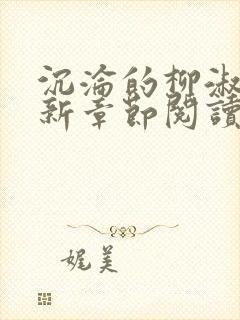 沉淪的柳淑
新章節閱讀
娓美